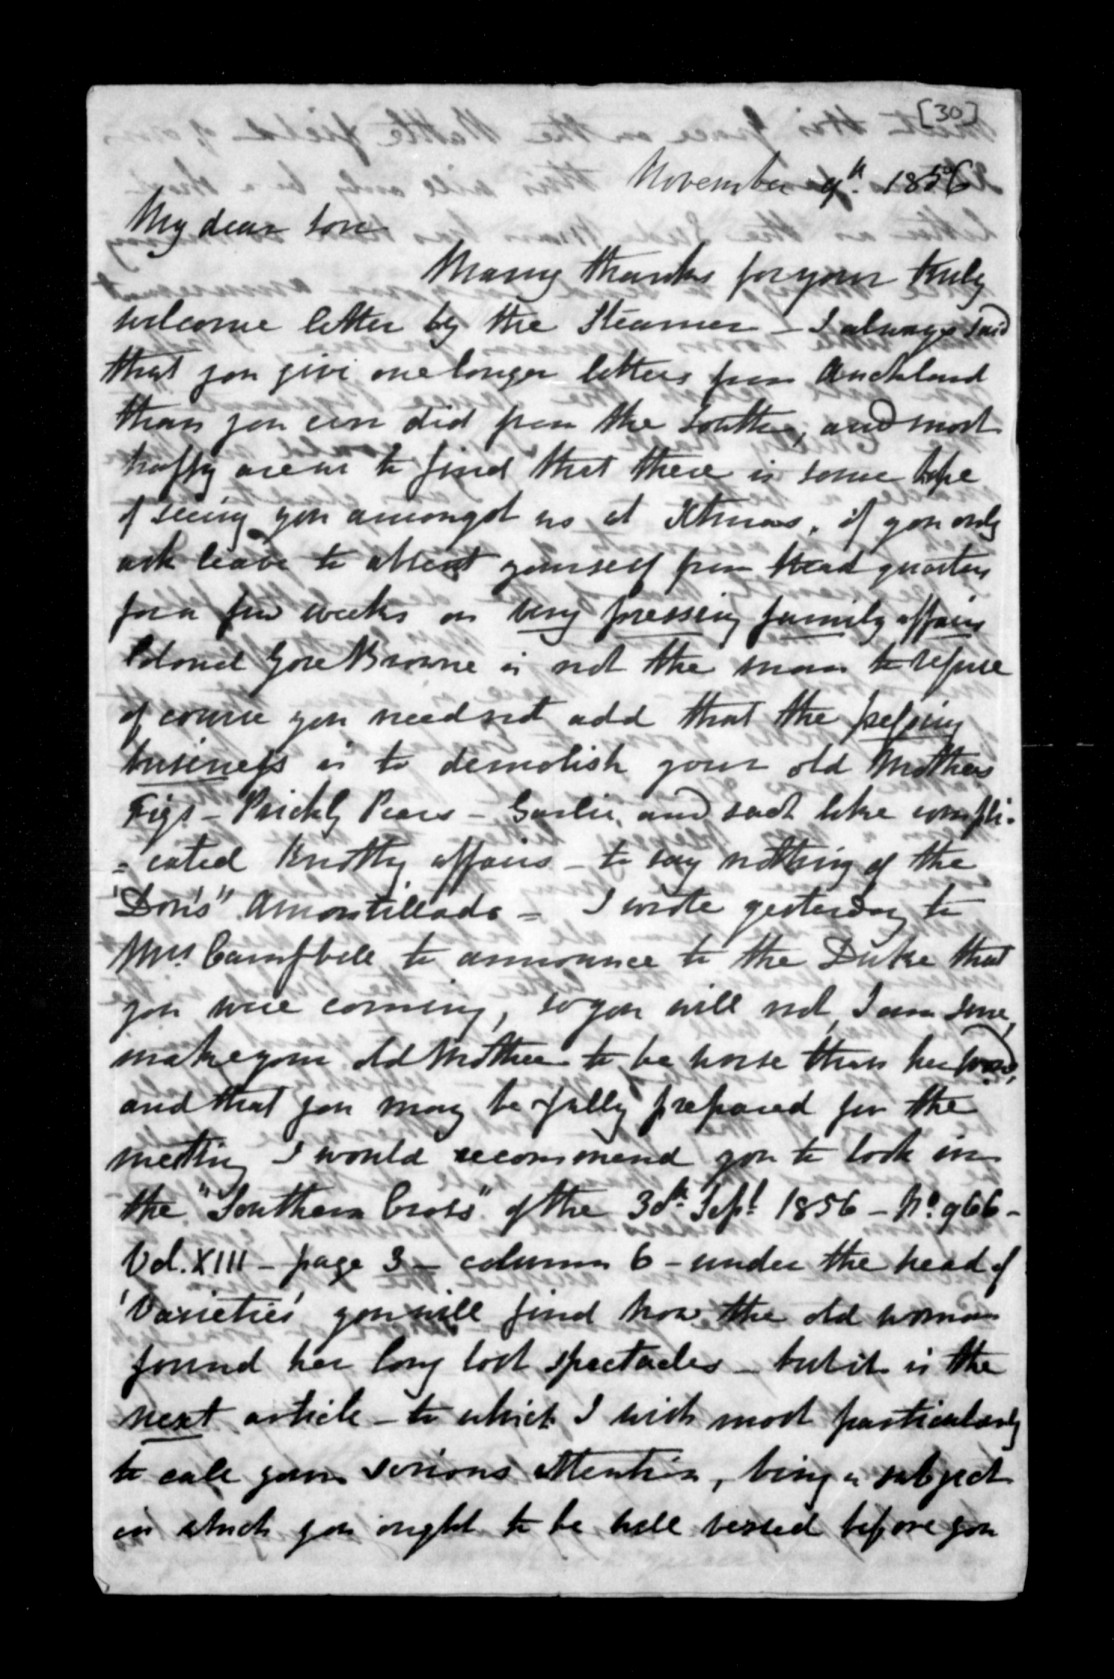 [30]
November 9th. 1856
My dear Son
Many thanks for your truly
welcome letter by the Steamer - I always said
that you give one longer letters from Auckland
than you ever did from the South, and most
happy are we to find that there is some hope
of seeing you amongst us at Xtmas, if you only
ask leave to absent yourself from Head quarters
for a few weeks on very pressing family affairs
Colonel Gore Browne is not the man to refuse
of course you need not add that the pressing
business is to demolish your old Mothers
Figs - Prickly Pears - Garlic, and such like compli-
=cated knotty affairs - to say nothing of the
"Don's" Amontillado = I wrote yesterday to
Mrs Campbell to announce to the Duke that
you were coming, so you will not, I am sure,
make your old Mother to be worse than her word,
and that you may be fully prepared for the
meeting I would recommend you to look in
the "Southern Cross" of the 30th Sept 1856 - No. 966 -
Vol. XIII - page 3 - column 6 - under the head of
'Varieties' you will find how the old woman
found her long lost spectacles - but it is the
next article - to which I wish most particularly
to call your serious attention, being a subject
in which you ought to be well versed before you